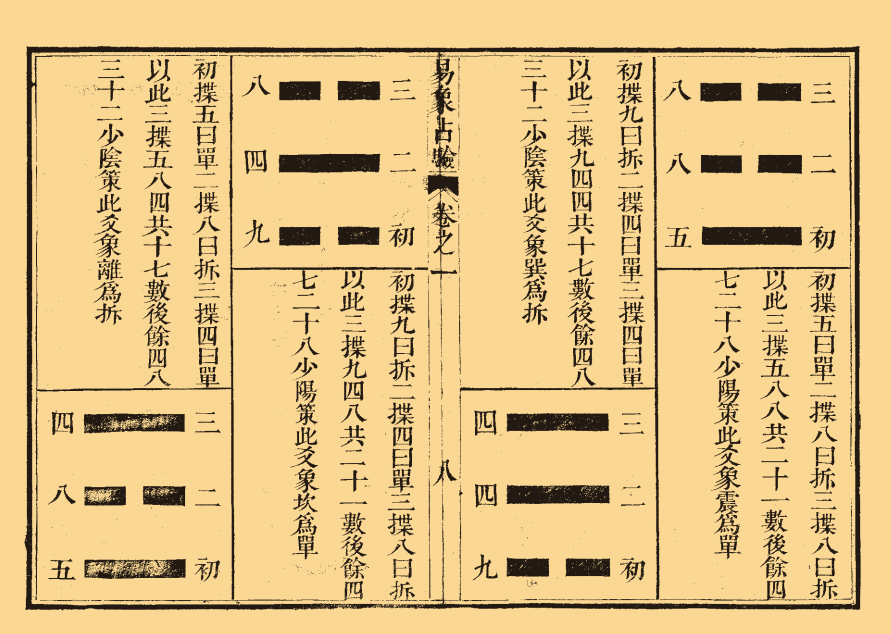 三 八
二 八
初 五
初揲五曰單二揲八曰拆三揲八曰拆
以此三揲五八八共二十一數後餘四
七二十八少陽策此爻象震爲單
初揲九曰拆二揲四曰單三揲四曰單
以此三揲九四四共十七數後餘四八
三十二少陰策此爻象巽爲拆
三 四
二 四
初 九
易象占驗 卷之一 八
三 八
二 四
初 九
初揲九曰拆二揲四曰單三揲八曰拆
以此三揲九四八共二十一數後餘四
七二十八少陽策此爻象坎爲單
初揲五曰單二揲八曰拆三揲四曰單
以此三揲五八四共十七數後餘四八
三十二少陰策此爻象離爲拆
三 四
二 八
初 五